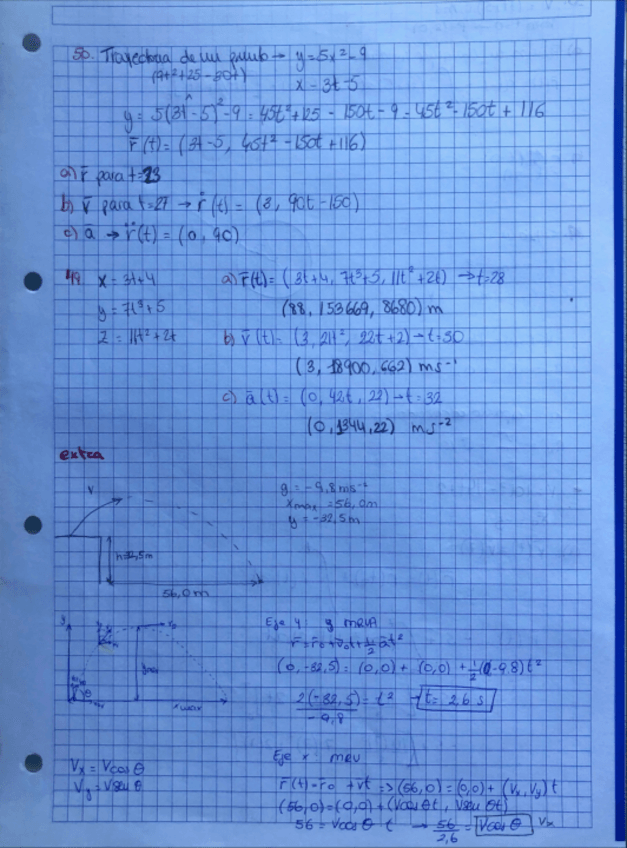 50. Trayectoria de un punto → y = 5x² - 9
(9t² + 25 - 30t)
x = 3t - 5
y = 5(3t - 5)² - 9 = 45t² + 125 - 150t - 9 = 45t² - 150t + 116
r̄(t) = (3t - 5, 45t² - 150t + 116)
a) r̄ para t = 23
b) v̄ para t = 27 → ṙ(t) = (3, 90t - 150)
c) ā → r̈(t) = (0, 90)
49. x = 3t + 4
y = 7t³ + 5
z = 11t² + 2t
a) r̄(t) = (3t + 4, 7t³ + 5, 11t² + 2t) → t = 28
(88, 153669, 8680) m
b) v̄(t) = (3, 21t², 22t + 2) → t = 30
(3, 18900, 662) ms⁻¹
c) ā(t) = (0, 42t, 22) → t = 32
(0, 1344, 22) ms⁻²
extra
v
g = -9,8 ms⁻²
xmax = 56,0m
y = -32,5m
h=32,5m
56,0m
y
ymax
θ
xmax
Eje y: MRUA
r̄ = r̄₀ + v̄₀t + ½ āt²
(0, -32,5) = (0,0) + (0,0) + ½(0, -9,8) t²
2(-32,5) / -9,8 = t² → t = 2,6 s
Vx = V cos θ
Vy = V sen θ
Eje x MRU
r̄(t) = r̄₀ + v̄t => (56,0) = (0,0) + (Vx, Vy) t
(56,0) = (0,0) + (V cos θ t, V sen θ t)
56 = V cos θ t → 56 / 2,6 = V cos θ Vx